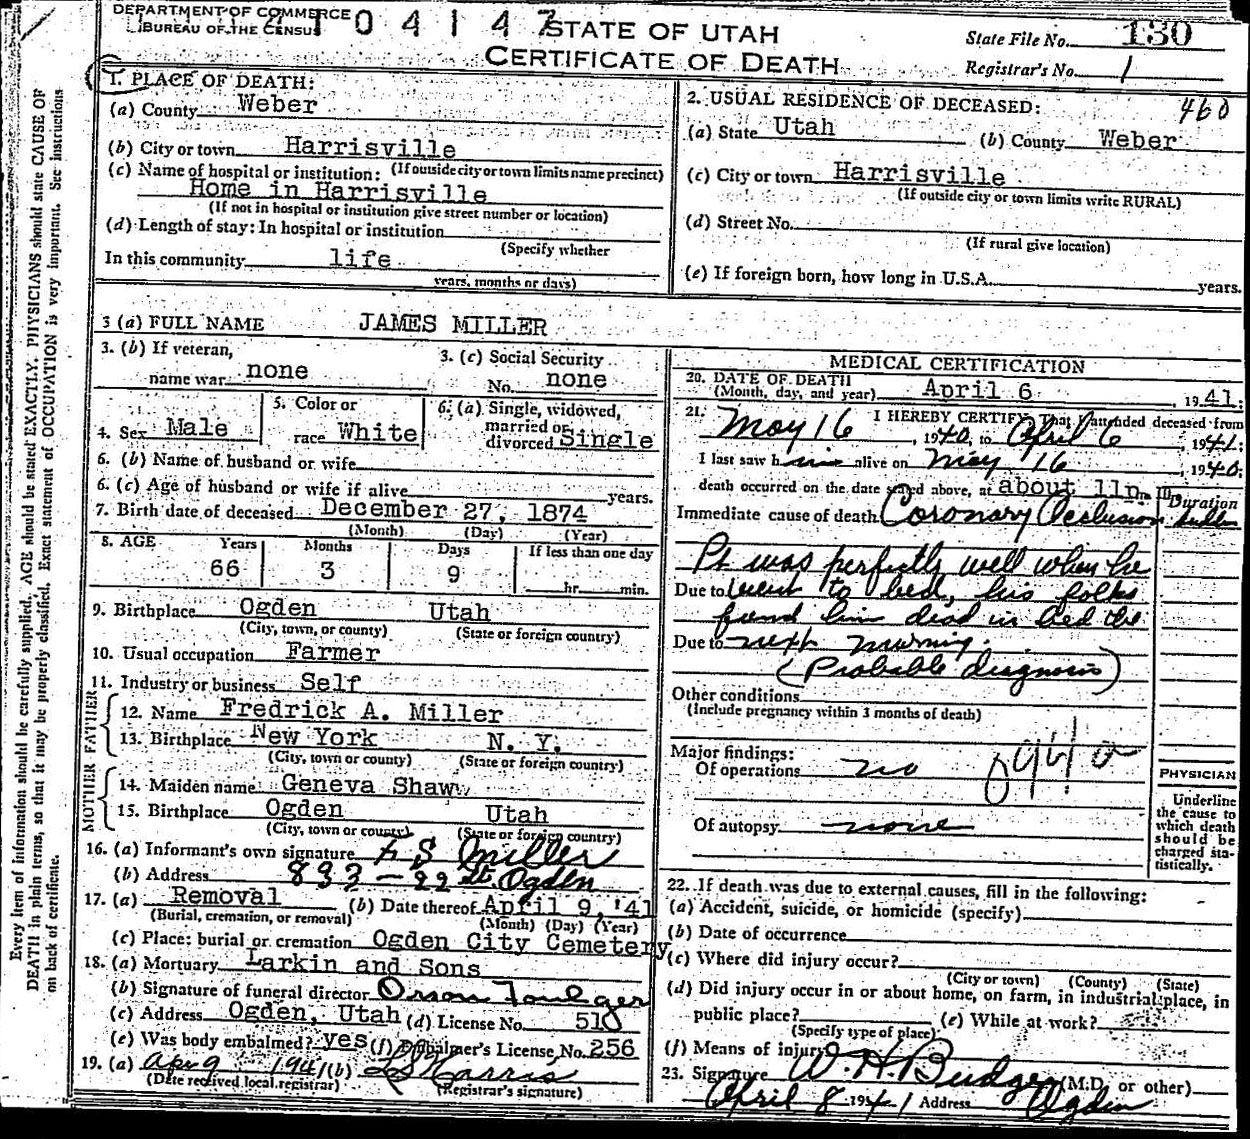 DEPARTMENT OF COMMERCE
BUREAU OF THE CENSUS
1 0 4 1 4 7
STATE OF UTAH
CERTIFICATE OF DEATH
State File No. 130
Registrar's No. 1
1. PLACE OF DEATH:
(a) County Weber
(b) City or town Harrisville
(c) Name of hospital or institution: (If outside city or town limits name precinct)
Home in Harrisville
(If not in hospital or institution give street number or location)
(d) Length of stay: In hospital or institution
(Specify whether
In this community life
years, months or days)
2. USUAL RESIDENCE OF DECEASED: 460
(a) State Utah (b) County Weber
(c) City or town Harrisville
(If outside city or town limits write RURAL)
(d) Street No.
(If rural give location)
(e) If foreign born, how long in U.S.A. years.
3 (a) FULL NAME JAMES MILLER
3. (b) If veteran,
name war none
3. (c) Social Security
No. none
4. Sex Male
5. Color or
race White
6. (a) Single, widowed,
married or
divorced Single
6. (b) Name of husband or wife
6. (c) Age of husband or wife if alive years.
7. Birth date of deceased December 27, 1874
(Month) (Day) (Year)
8. AGE Years Months Days If less than one day
66 3 9 hr. min.
9. Birthplace Ogden Utah
(City, town, or county) (State or foreign country)
10. Usual occupation Farmer
11. Industry or business Self
FATHER
12. Name Fredrick A. Miller
13. Birthplace New York N. Y.
(City, town or county) (State or foreign country)
MOTHER
14. Maiden name Geneva Shaw
15. Birthplace Ogden Utah
(City, town or county) (State or foreign country)
16. (a) Informant's own signature F S Miller
(b) Address 833 - 22 St. Ogden
17. (a) Removal (b) Date thereof April 9, '41
(Burial, cremation, or removal) (Month) (Day) (Year)
(c) Place: burial or cremation Ogden City Cemetery
18. (a) Mortuary Larkin and Sons
(b) Signature of funeral director Orson Foulger
(c) Address Ogden, Utah (d) License No. 510
(e) Was body embalmed? yes (f) Embalmer's License No. 256
19. (a) Apr 9 1941 (b) Harris
(Date received local registrar) (Registrar's signature)
MEDICAL CERTIFICATION
20. DATE OF DEATH
(Month, day, and year) April 6, 1941.
21. I HEREBY CERTIFY, That I attended deceased from
May 16, 1940, to April 6, 1941.
I last saw him alive on May 16, 1940.
death occurred on the date stated above, at about 11p. m.
Duration
Immediate cause of death Coronary Occlusion
Pt was perfectly well when he
Due to went to bed, his folks
found him dead in bed the
Due to next morning.
(Probable diagnosis)
Other conditions
(Include pregnancy within 3 months of death)
Major findings:
Of operations no
094a
Of autopsy none
PHYSICIAN
Underline
the cause to
which death
should be
charged sta-
tistically.
22. If death was due to external causes, fill in the following:
(a) Accident, suicide, or homicide (specify)
(b) Date of occurrence
(c) Where did injury occur?
(City or town) (County) (State)
(d) Did injury occur in or about home, on farm, in industrial place, in
public place? (e) While at work?
(Specify type of place)
(f) Means of injury
23. Signature W. H. Budge (M.D. or other)
April 8 1941 Address Ogden
Every item of information should be carefully supplied. AGE should be stated EXACTLY. PHYSICIANS should state CAUSE OF
DEATH in plain terms, so that it may be properly classified. Exact statement of OCCUPATION is very important. See instructions
on back of certificate.